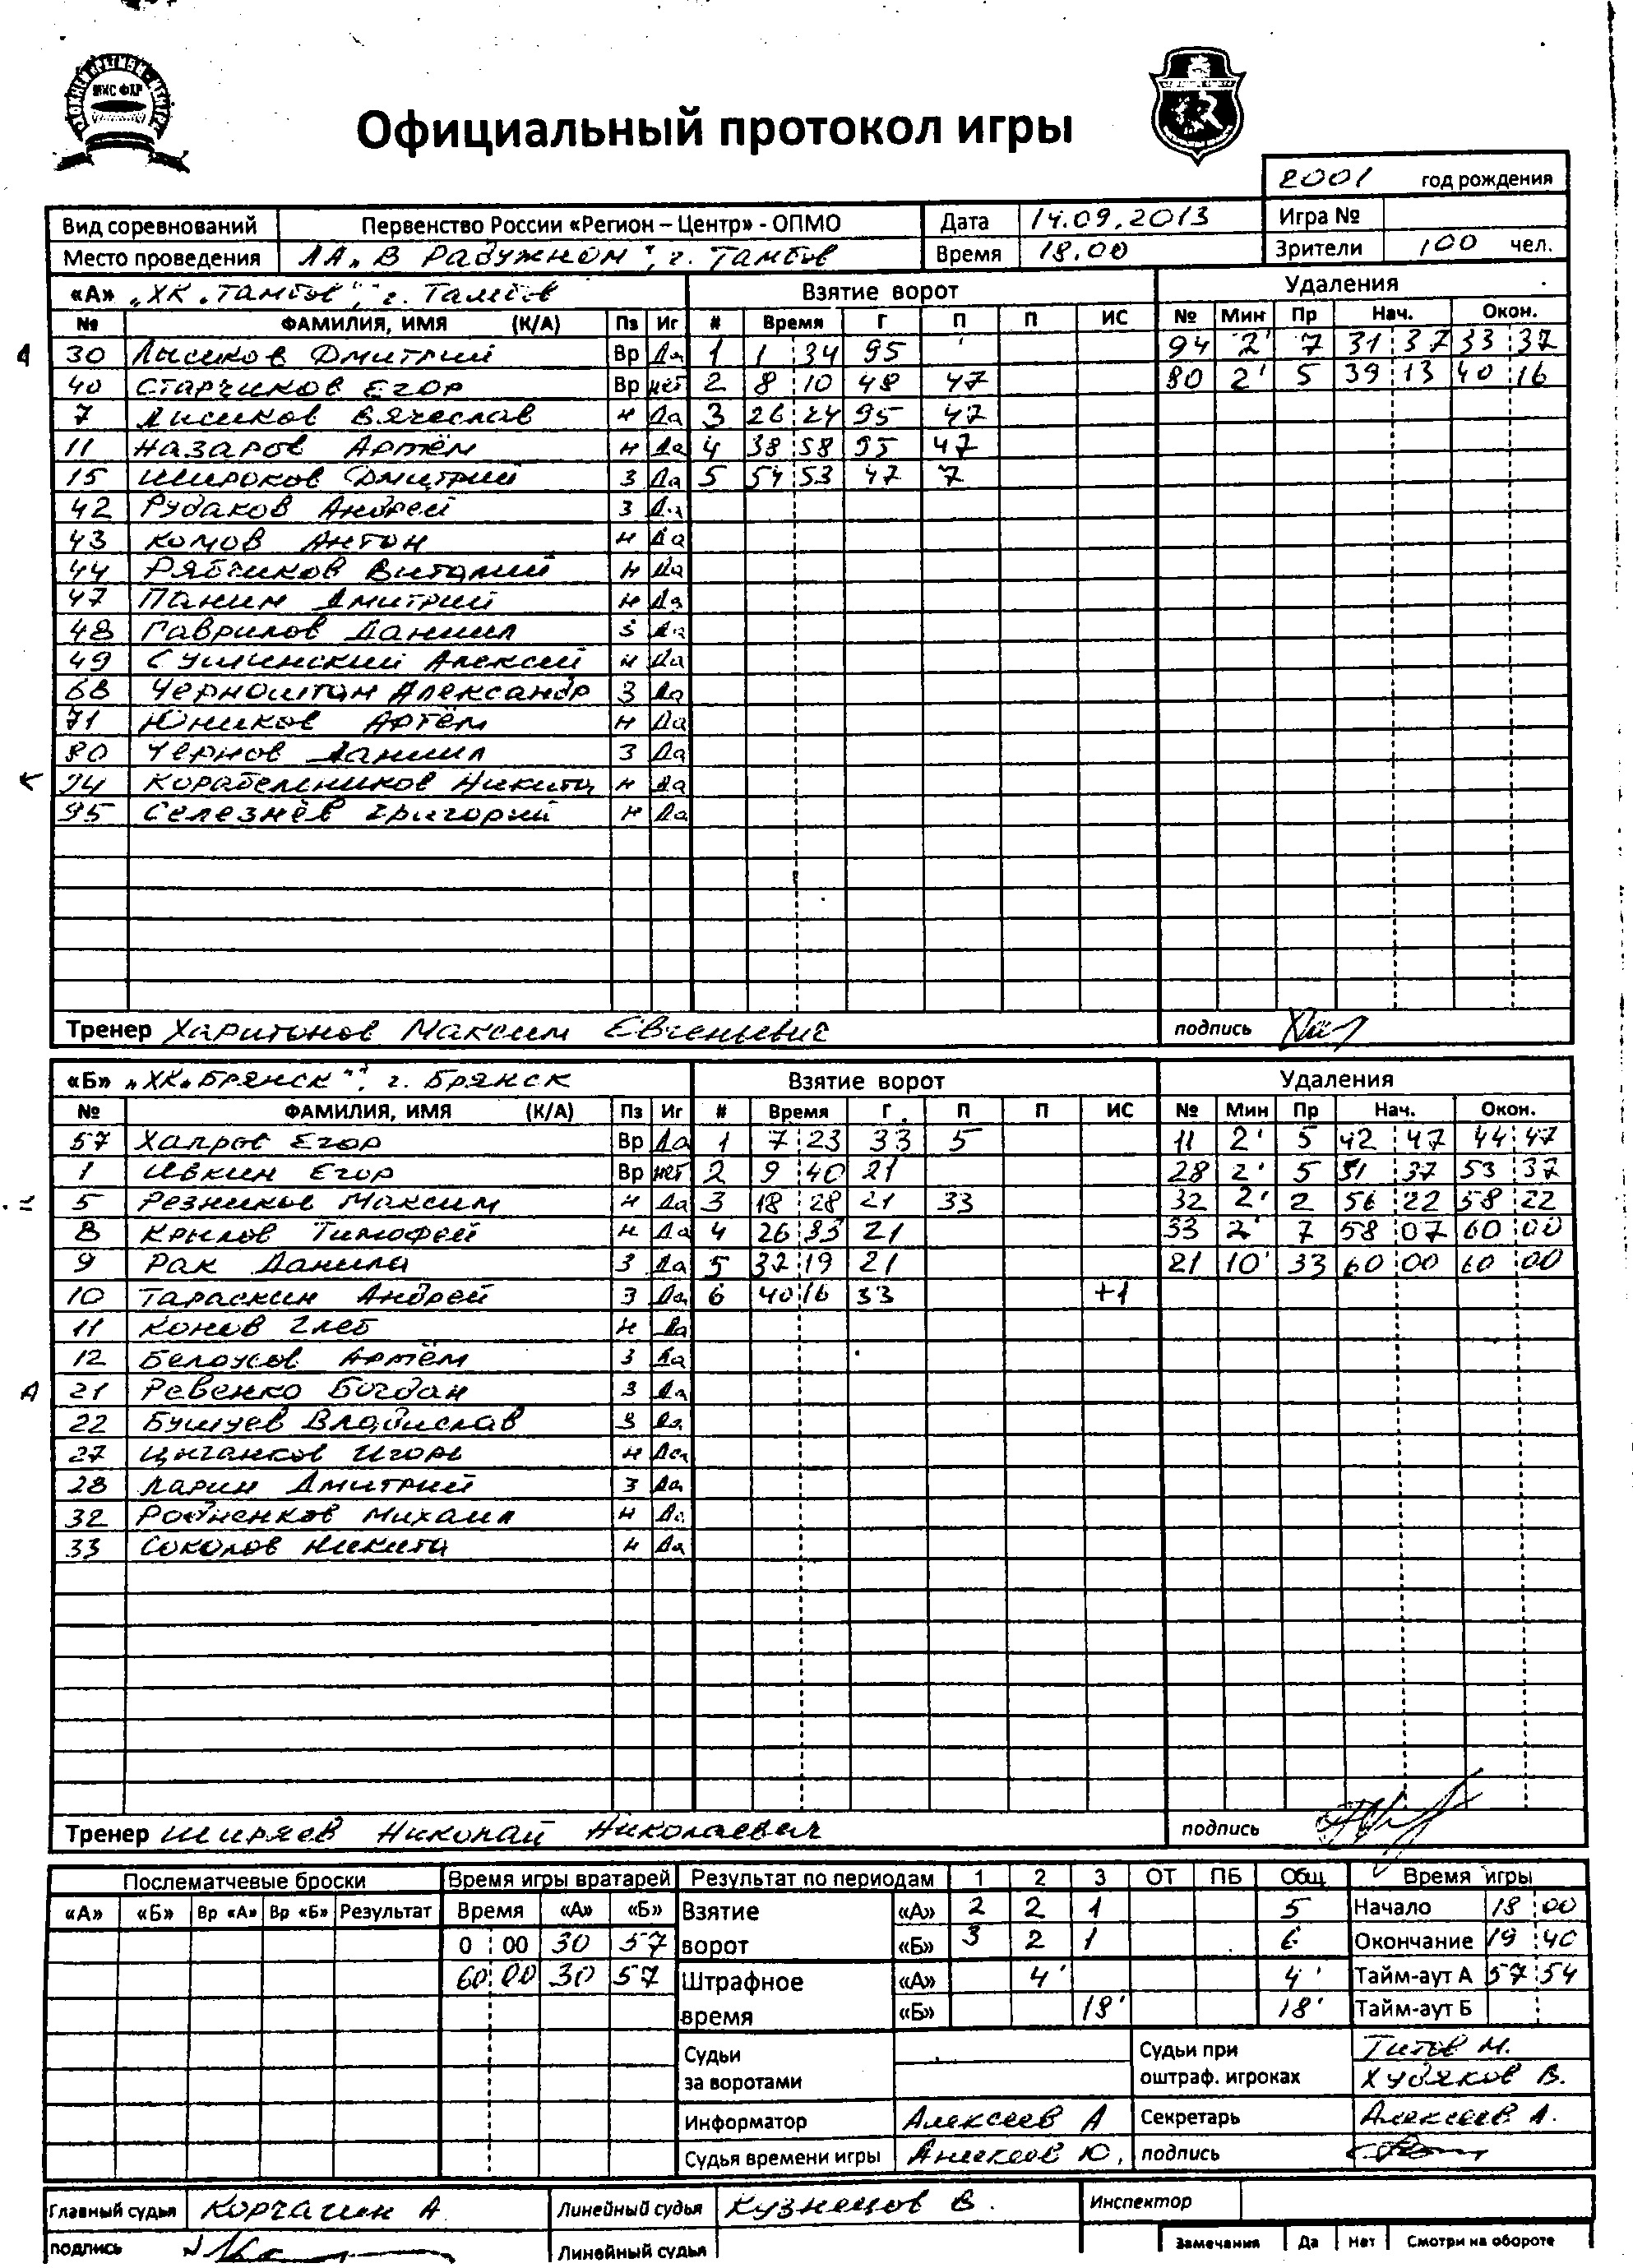 Официальный протокол игры
2001 год рождения
Вид соревнований Первенство России «Регион – Центр» - ОПМО Дата 14.09.2013 Игра №
Место проведения ЛА „В Радужном", г. Тамбов Время 18.00 Зрители 100 чел.
«А» „ХК „Тамбов", г. Тамбов Взятие ворот Удаления
№ ФАМИЛИЯ, ИМЯ (К/А) Пз Иг # Время Г П П ИС № Мин Пр Нач. Окон.
30 Лысиков Дмитрий Вр Да 1 1 34 95 94 2' 7 31 37 33 37
40 Старчиков Егор Вр нет 2 8 10 48 47 80 2' 5 39 13 40 16
7 Лысиков Вячеслав н Да 3 26 24 95 47
11 Назаров Артём н Да 4 38 58 95 47
15 Широков Дмитрий З Да 5 54 53 47 7
42 Рудаков Андрей З Да
43 Комов Антон н Да
44 Рябчиков Виталий н Да
47 Панин Дмитрий н Да
48 Гаврилов Даниил З Да
49 Сушинский Алексей н Да
68 Черноштан Александр З Да
71 Юников Артём н Да
80 Чернов Даниил З Да
94 Корабельников Никита н Да
95 Селезнёв Григорий н Да
Тренер Харитонов Максим Евгеньевич подпись
«Б» „ХК „Брянск", г. Брянск Взятие ворот Удаления
№ ФАМИЛИЯ, ИМЯ (К/А) Пз Иг # Время Г П П ИС № Мин Пр Нач. Окон.
57 Хапров Егор Вр Да 1 7 23 33 5 11 2' 5 42 47 44 47
1 Ивкин Егор Вр нет 2 9 40 21 28 2' 5 51 37 53 37
5 Резников Максим н Да 3 18 28 21 33 32 2' 2 56 22 58 22
8 Крылов Тимофей н Да 4 26 33 21 33 2' 7 58 07 60 00
9 Рак Данила З Да 5 32 19 21 21 10' 33 60 00 60 00
10 Тараскин Андрей З Да 6 40 16 33 +1
11 Конов Глеб н Да
12 Белоусов Артём З Да
А 21 Ревенко Богдан З Да
22 Бушуев Владислав З Да
27 Цыганков Игорь н Да
28 Ларин Дмитрий З Да
32 Родненков Михаил н Да
33 Соколов Никита н Да
Тренер Ширяев Николай Николаевич подпись
Послематчевые броски Время игры вратарей Результат по периодам 1 2 3 ОТ ПБ Общ Время игры
«А» «Б» Вр «А» Вр «Б» Результат Время «А» «Б» Взятие «А» 2 2 1 5 Начало 18 00
0 00 30 57 ворот «Б» 3 2 1 6 Окончание 19 40
60 00 30 57 Штрафное «А» 4' 4' Тайм-аут А 57 54
время «Б» 18' 18' Тайм-аут Б
Судьи за воротами Судьи при оштраф. игроках Титов М.
Худяков В.
Информатор Алексеев А Секретарь Алексеев А.
Судья времени игры Алексеев Ю. подпись
Главный судья Корчагин А. Линейный судья Кузнецов В. Инспектор
подпись Линейный судья Замечания Да Нет Смотри на обороте